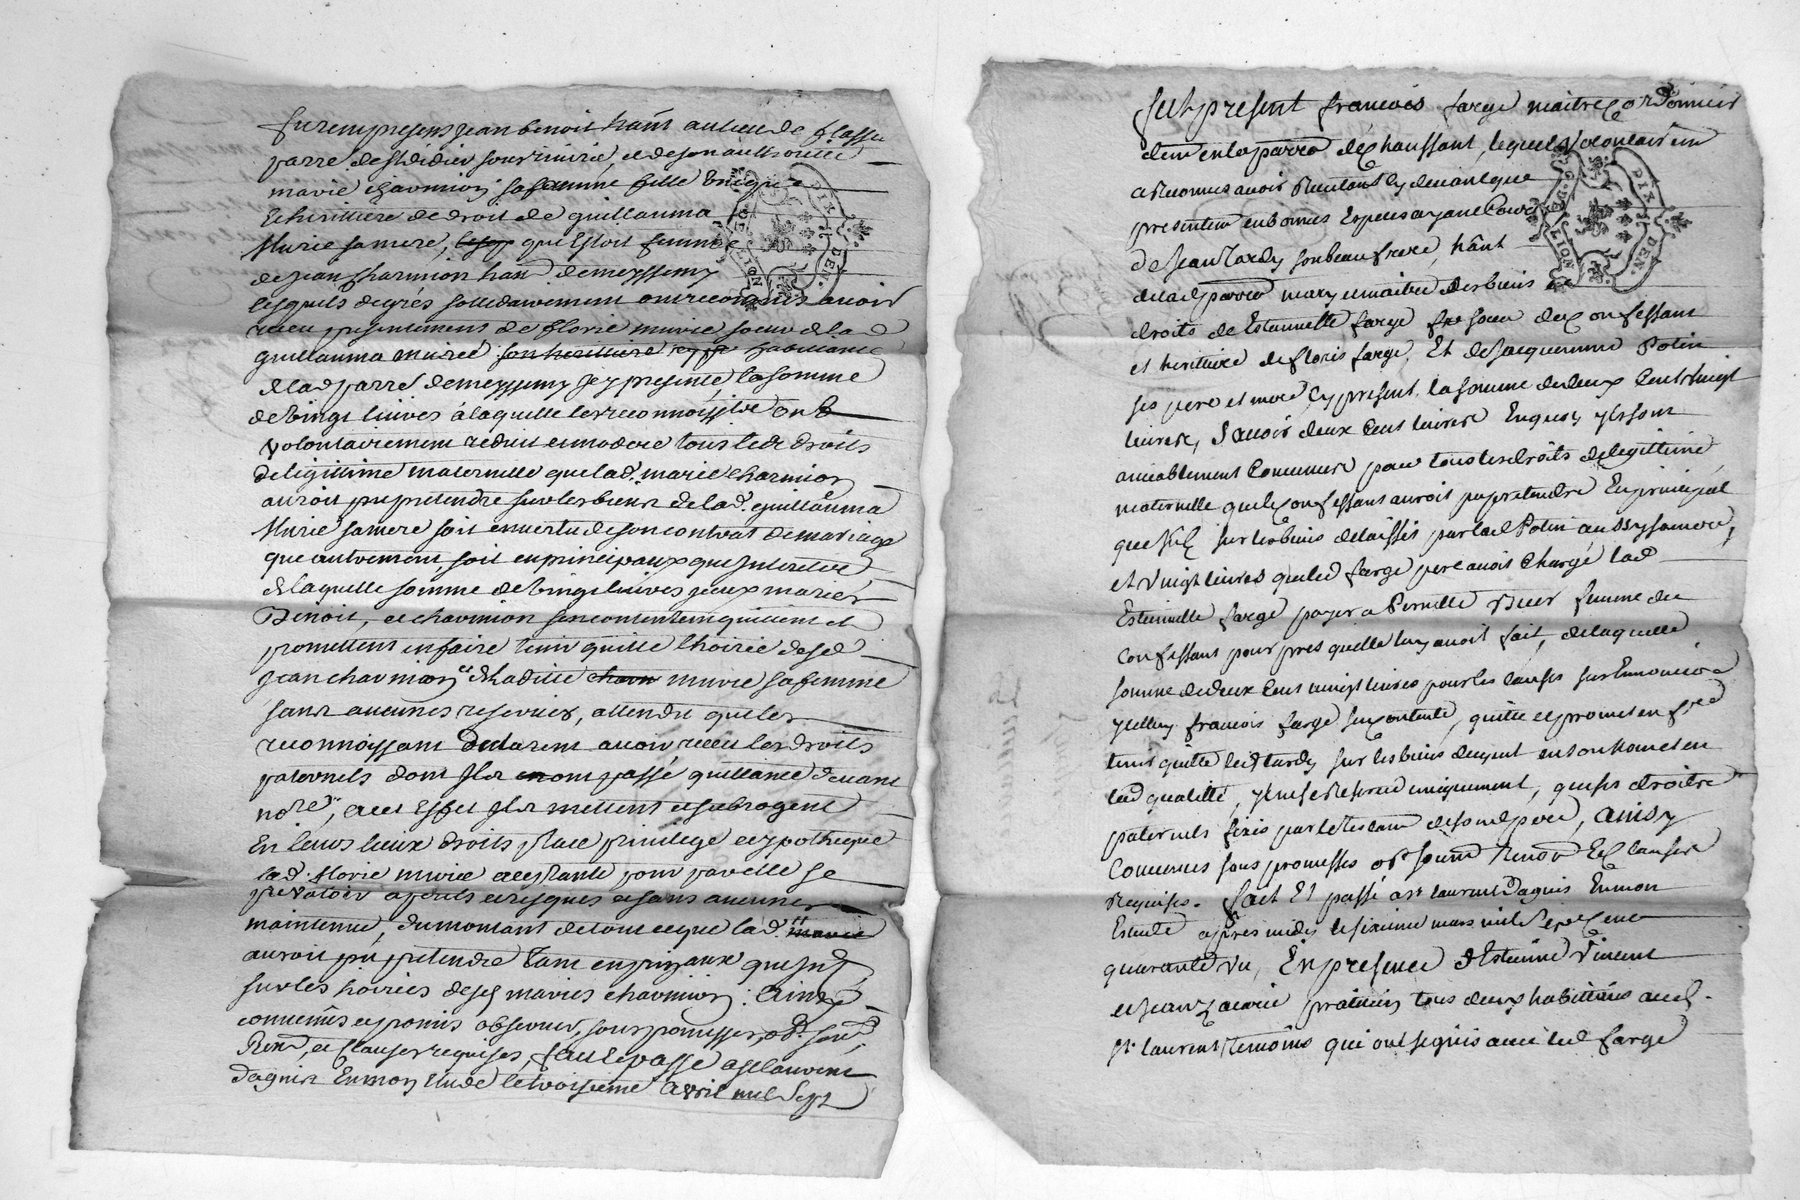 furent presens jean benoit hânt au lieu de flassu
parre de st didier sous rivirie, et de son authorité
marie charmion sa femme fille unique
et herittiere de droit de guillauma
Murie sa mere, qui Estoit femme
de jean charmion hant de meyssemy
lesquels de grés sollidairement ont reconnus avoir
receu presentement de florie murie soeur de lad
guillauma murie son herittiere habittante
de lad parre de meyssemy jcy presente, la somme
de vingt livres à laquelle les reconnoissts ont
volontairement reduit et modere tous les droits
de ligittime maternelle que lad. marie charmion
auroit pu pretendre sur les biens de lad. guillauma
Murie sa mere soit en vertu de son contrat de mariage
que autrement, soit en principaux que jnterets
de laquelle somme de vingt livres jceux mariés
Benoit, et charmion s'en contentent quittent et
promettent en faire tenir quitte l'hoirie desd
jean charmion et de laditte murie sa femme
sans aucunes reserves, attendu que les
reconnoissant declarent avoir receu les droits
paternels dont jls ont passé quittance devant
nore, a cet Effet jls mettent et subrogent
En leurs lieux droits place privilege et ypotheque
lad. florie murie acceptante pour par elle se
prevaloir a perils et risques et sans aucune
maintenue, du montant de tout ce que lad.
auroit pu pretendre tant en prinaux que jnts
sur les hoiries desd mariés charmion. Ainsy
convenus et promis observer, sous promesses obt soum
Renon, et clauses requises, fait et passé a st laurent
dagnis En mon Etude le troisieme avril mil sept
fut present francois farge maitre cordonnier
demt en la parre d'echaussant, lequel volontairemt
a reconnus avoir receu tant cy devant que
presentemt en bonnes Especes ayant cours
de jean tardy son beau frere, hânt
de lad parre mary et maitre des biens et
droits de Estiennette farge sa soeur dud confessant
et heritiere de floris farge, Et de jacquemme Potin
ses pere et mere, cy present, la somme de deux cent vingt
livres, savoir deux cens livres En quoy ils sont
amiablement Convenus pour tous les droits de legittime
maternelle que le confessant auroit pu pretendre En principal
que jnts sur les biens delaissés par lad Potin aussy sa mere,
et vingt livres que led farge pere avoit chargé lad
Estiennette farge payer a Pernette femme du
Confessant pour pres quelle luy avoit fait, de laquelle
somme de deux cens vingt livres pour les causes sus Enoncées
jcelluy francois farge s'en contente, quitte et promet en faire
tenir quitte led tardy sur les biens duquel en son nom et en
lad qualitté, il ne se reserve uniquement, que ses droits
paternels fixés par le testamt de son d pere, Ainsy
Convenus sous promesses obt soum Renon Et clauses
Requises. fait Et passé a st laurent Dagnis En mon
Etude apres midy le sixieme mars mil sept cens
quarante En presence d'Estienne Vincent
et jean zacarie praticiens tous deux habittans aud.
st laurent temoins qui ont signés avec led farge
DIX DEN.
G. DE LION
DIX DEN.
G. DE LION